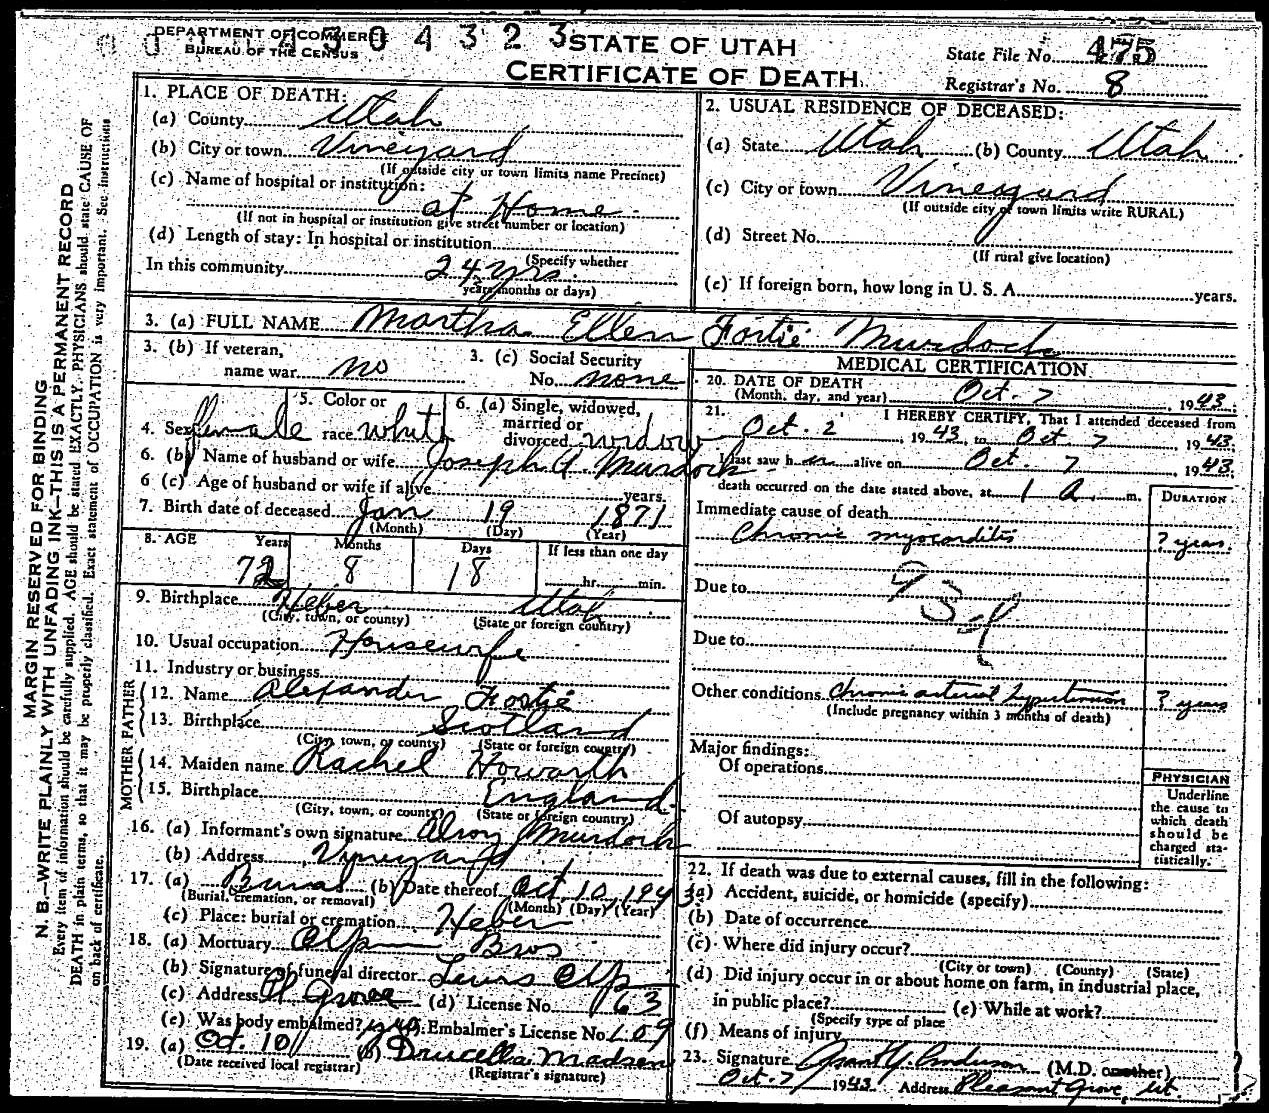 DEPARTMENT OF COMMERCE
BUREAU OF THE CENSUS
4304323
STATE OF UTAH
CERTIFICATE OF DEATH
State File No. 475
Registrar's No. 8
MARGIN RESERVED FOR BINDING
N. B.—WRITE PLAINLY WITH UNFADING INK—THIS IS A PERMANENT RECORD
Every item of information should be carefully supplied. AGE should be stated EXACTLY. PHYSICIANS should state CAUSE OF
DEATH in plain terms, so that it may be properly classified. Exact statement of OCCUPATION is very important. See instructions
on back of certificate.
1. PLACE OF DEATH:
(a) County Utah
(b) City or town Vineyard
(If outside city or town limits name Precinct)
(c) Name of hospital or institution:
at Home
(If not in hospital or institution give street number or location)
(d) Length of stay: In hospital or institution
(Specify whether
In this community 24 yrs.
years, months or days)
2. USUAL RESIDENCE OF DECEASED:
(a) State Utah (b) County Utah
(c) City or town Vineyard
(If outside city or town limits write RURAL)
(d) Street No.
(If rural give location)
(e) If foreign born, how long in U. S. A. years.
3. (a) FULL NAME Martha Ellen Fortie Murdock
3. (b) If veteran,
name war no
3. (c) Social Security
No. none
4. Sex female
5. Color or
race white
6. (a) Single, widowed,
married or
divorced widow
6. (b) Name of husband or wife Joseph A. Murdock
6 (c) Age of husband or wife if alive years.
7. Birth date of deceased Jan 19 1871
(Month) (Day) (Year)
8. AGE Years Months Days If less than one day
72 8 18 hr. min.
9. Birthplace Heber Utah
(City, town, or county) (State or foreign country)
10. Usual occupation Housewife
11. Industry or business
FATHER
12. Name Alexander Fortie
13. Birthplace Scotland
(City, town, or county) (State or foreign country)
MOTHER
14. Maiden name Rachel Howarth
15. Birthplace England
(City, town, or county) (State or foreign country)
16. (a) Informant's own signature Alroy Murdock
(b) Address Vineyard
17. (a) Burial (b) Date thereof Oct. 10, 1943
(Burial, cremation, or removal) (Month) (Day) (Year)
(c) Place: burial or cremation Heber
18. (a) Mortuary Olpin Bros
(b) Signature of funeral director Lewis Olpin
(c) Address Pl Grove (d) License No. 63
(e) Was body embalmed? yes Embalmer's License No. 109
19. (a) Oct. 10 (b) Drucella Madsen
(Date received local registrar) (Registrar's signature)
MEDICAL CERTIFICATION
20. DATE OF DEATH
(Month, day, and year) Oct. 7, 1943.
21. I HEREBY CERTIFY, That I attended deceased from
Oct. 2, 1943, to Oct 7 1943.
I last saw her alive on Oct. 7 1943.
death occurred on the date stated above, at 1 a. m.
DURATION
Immediate cause of death
Chronic myocarditis ? years.
Due to
93d
Due to
Other conditions Chronic arterial hypertension ? years
(Include pregnancy within 3 months of death)
Major findings:
Of operations
Of autopsy
PHYSICIAN
Underline
the cause to
which death
should be
charged sta-
tistically.
22. If death was due to external causes, fill in the following:
(a) Accident, suicide, or homicide (specify)
(b) Date of occurrence
(c) Where did injury occur?
(City or town) (County) (State)
(d) Did injury occur in or about home on farm, in industrial place,
in public place? (e) While at work?
(Specify type of place
(f) Means of injury
23. Signature Grant Y. Anderson (M.D. or other)
Oct. 7, 1943 Address Pleasant Grove, Ut.